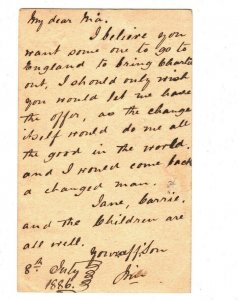 My dear Ma.
I believe you
want some one to go to
England to bring Charlie
out, I should only wish
you would let me have
the offer, as the change
itself would do me all
the good in the world.
and I would come back
a changed man.
Jane, Carrie.
and the Children are
all well.
Your aff. Son
8th July
1886.